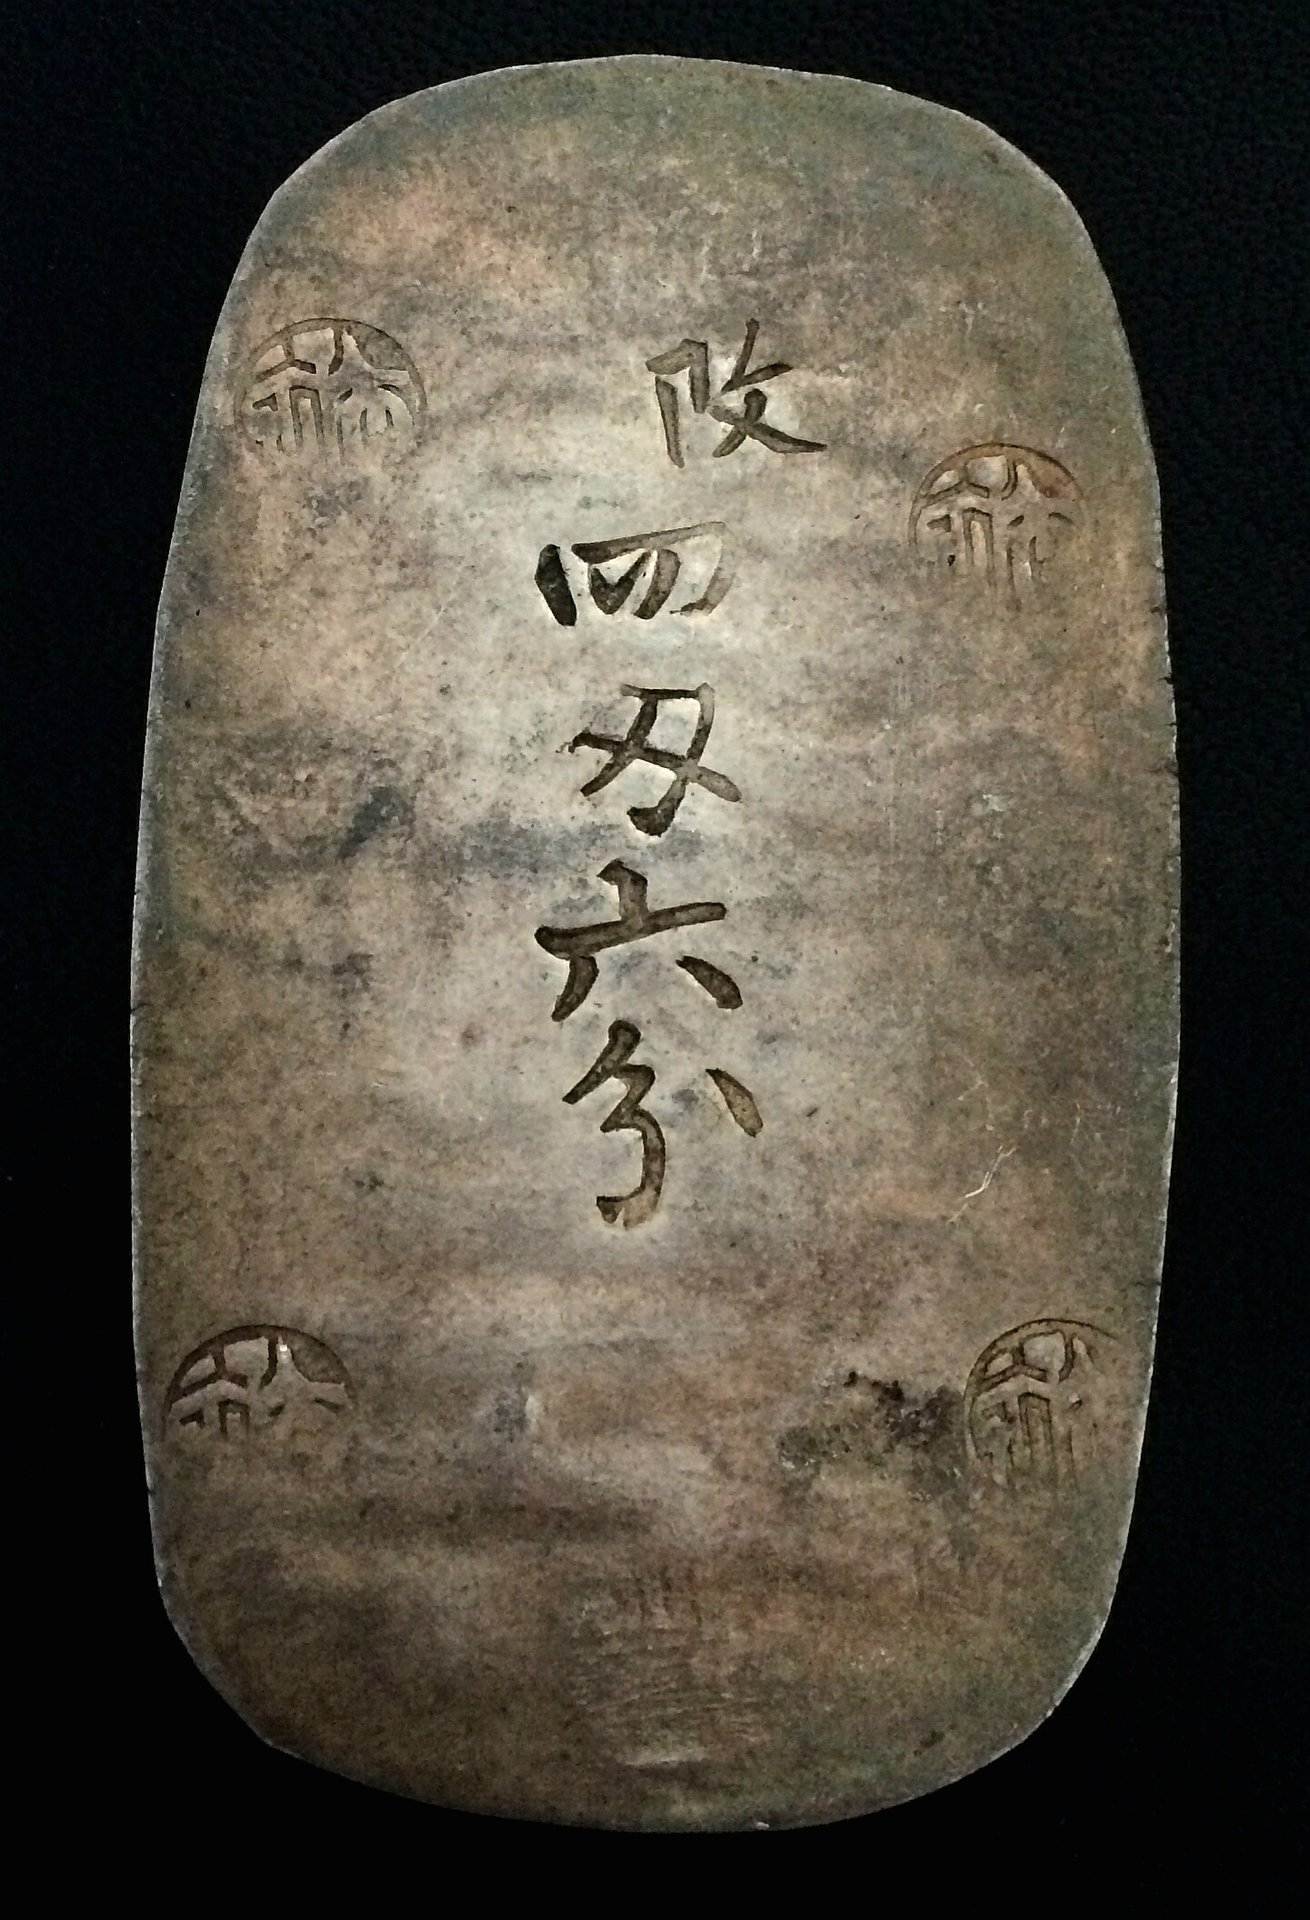 改四匁六分